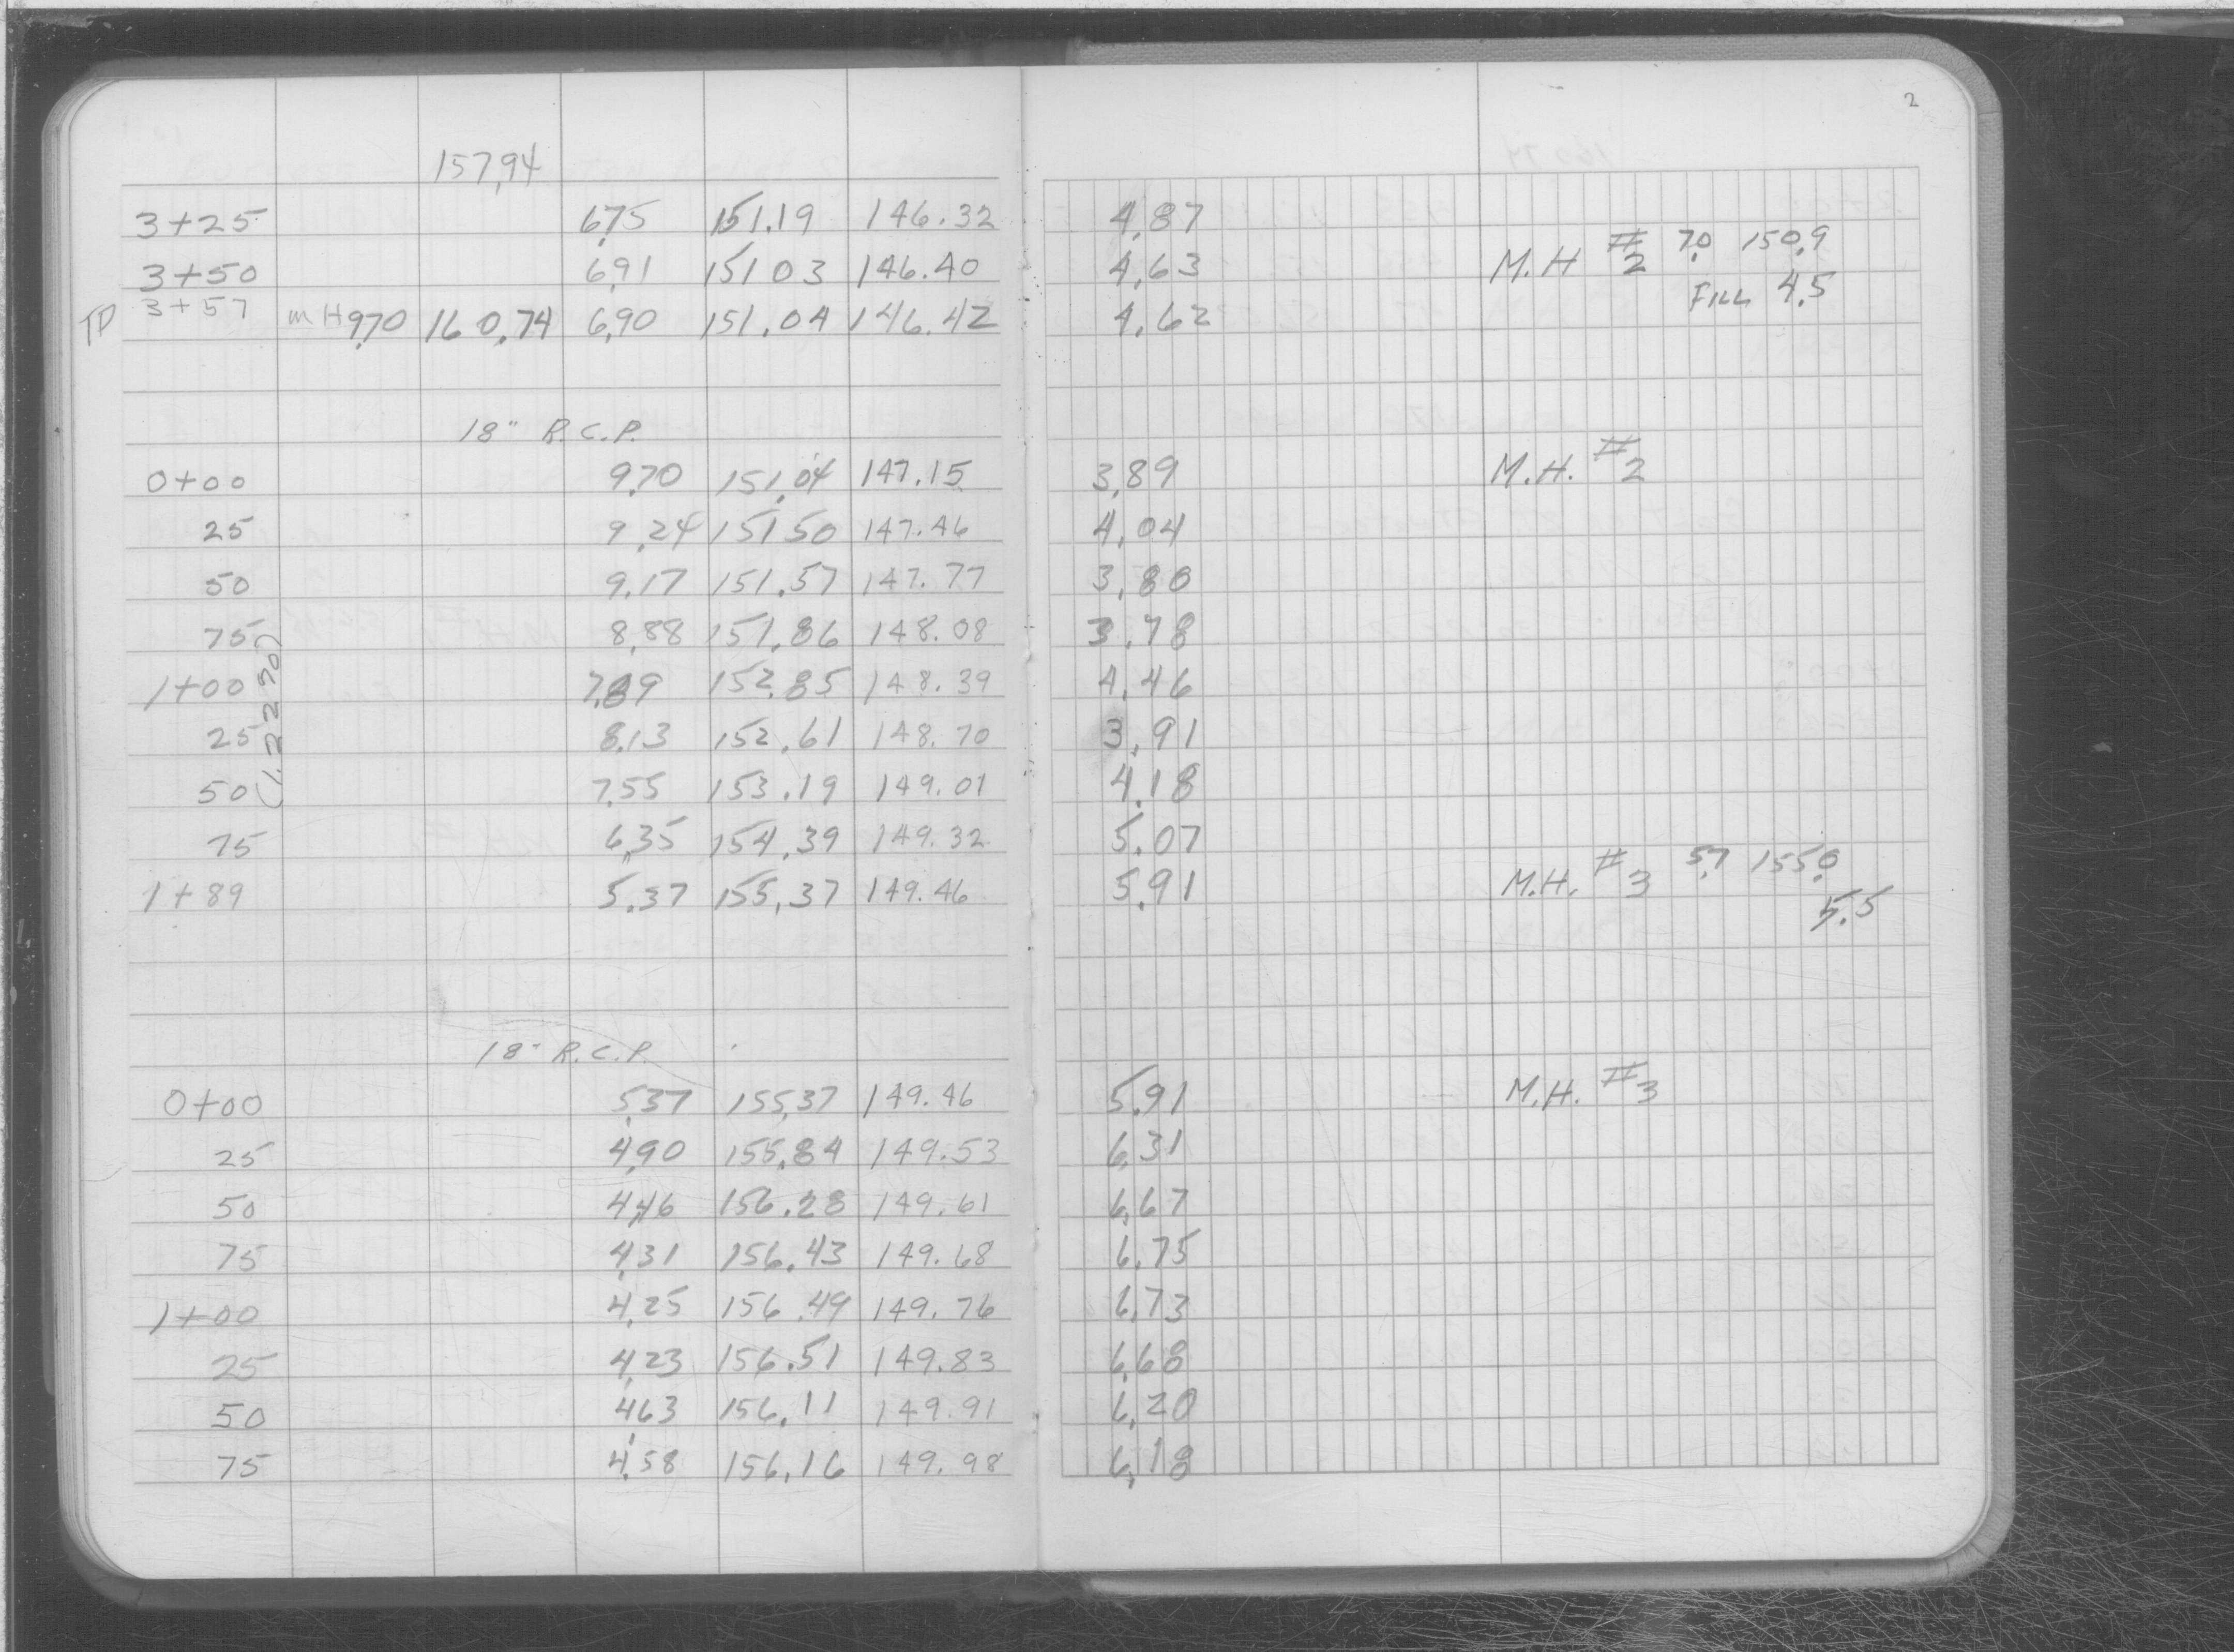 2
157.94
3+25 6.75 151.19 146.32 4.87
3+50 6.91 151.03 146.40 4.63 M.H #2 7.0 150.9
FILL 4.5
TP 3+57 MH 9.70 160.74 6.90 151.04 146.42 4.62
18" R.C.P.
0+00 9.70 151.04 147.15 3.89 M.H. #2
25 9.24 151.50 147.46 4.04
50 9.17 151.57 147.77 3.80
75 8.88 151.86 148.08 3.78
1+00 7.89 152.85 148.39 4.46
25 8.13 152.61 148.70 3.91
50 7.55 153.19 149.01 4.18
75 6.35 154.39 149.32 5.07
1+89 5.37 155.37 149.46 5.91 M.H. #3 5.7 155.0
5.5
18" R.C.P.
0+00 5.37 155.37 149.46 5.91 M.H. #3
25 4.90 155.84 149.53 6.31
50 4.46 156.28 149.61 6.67
75 4.31 156.43 149.68 6.75
1+00 4.25 156.49 149.76 6.73
25 4.23 156.51 149.83 6.68
50 4.63 156.11 149.91 6.20
75 4.58 156.16 149.98 6.18